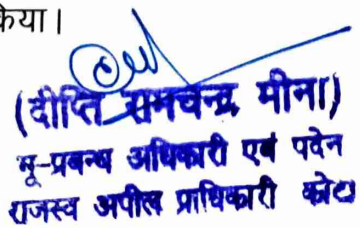 किया।
(दीप्ति रामचन्द्र मीना)
भू-प्रबन्ध अधिकारी एवं पदेन
राजस्व अपील प्राधिकारी कोटा